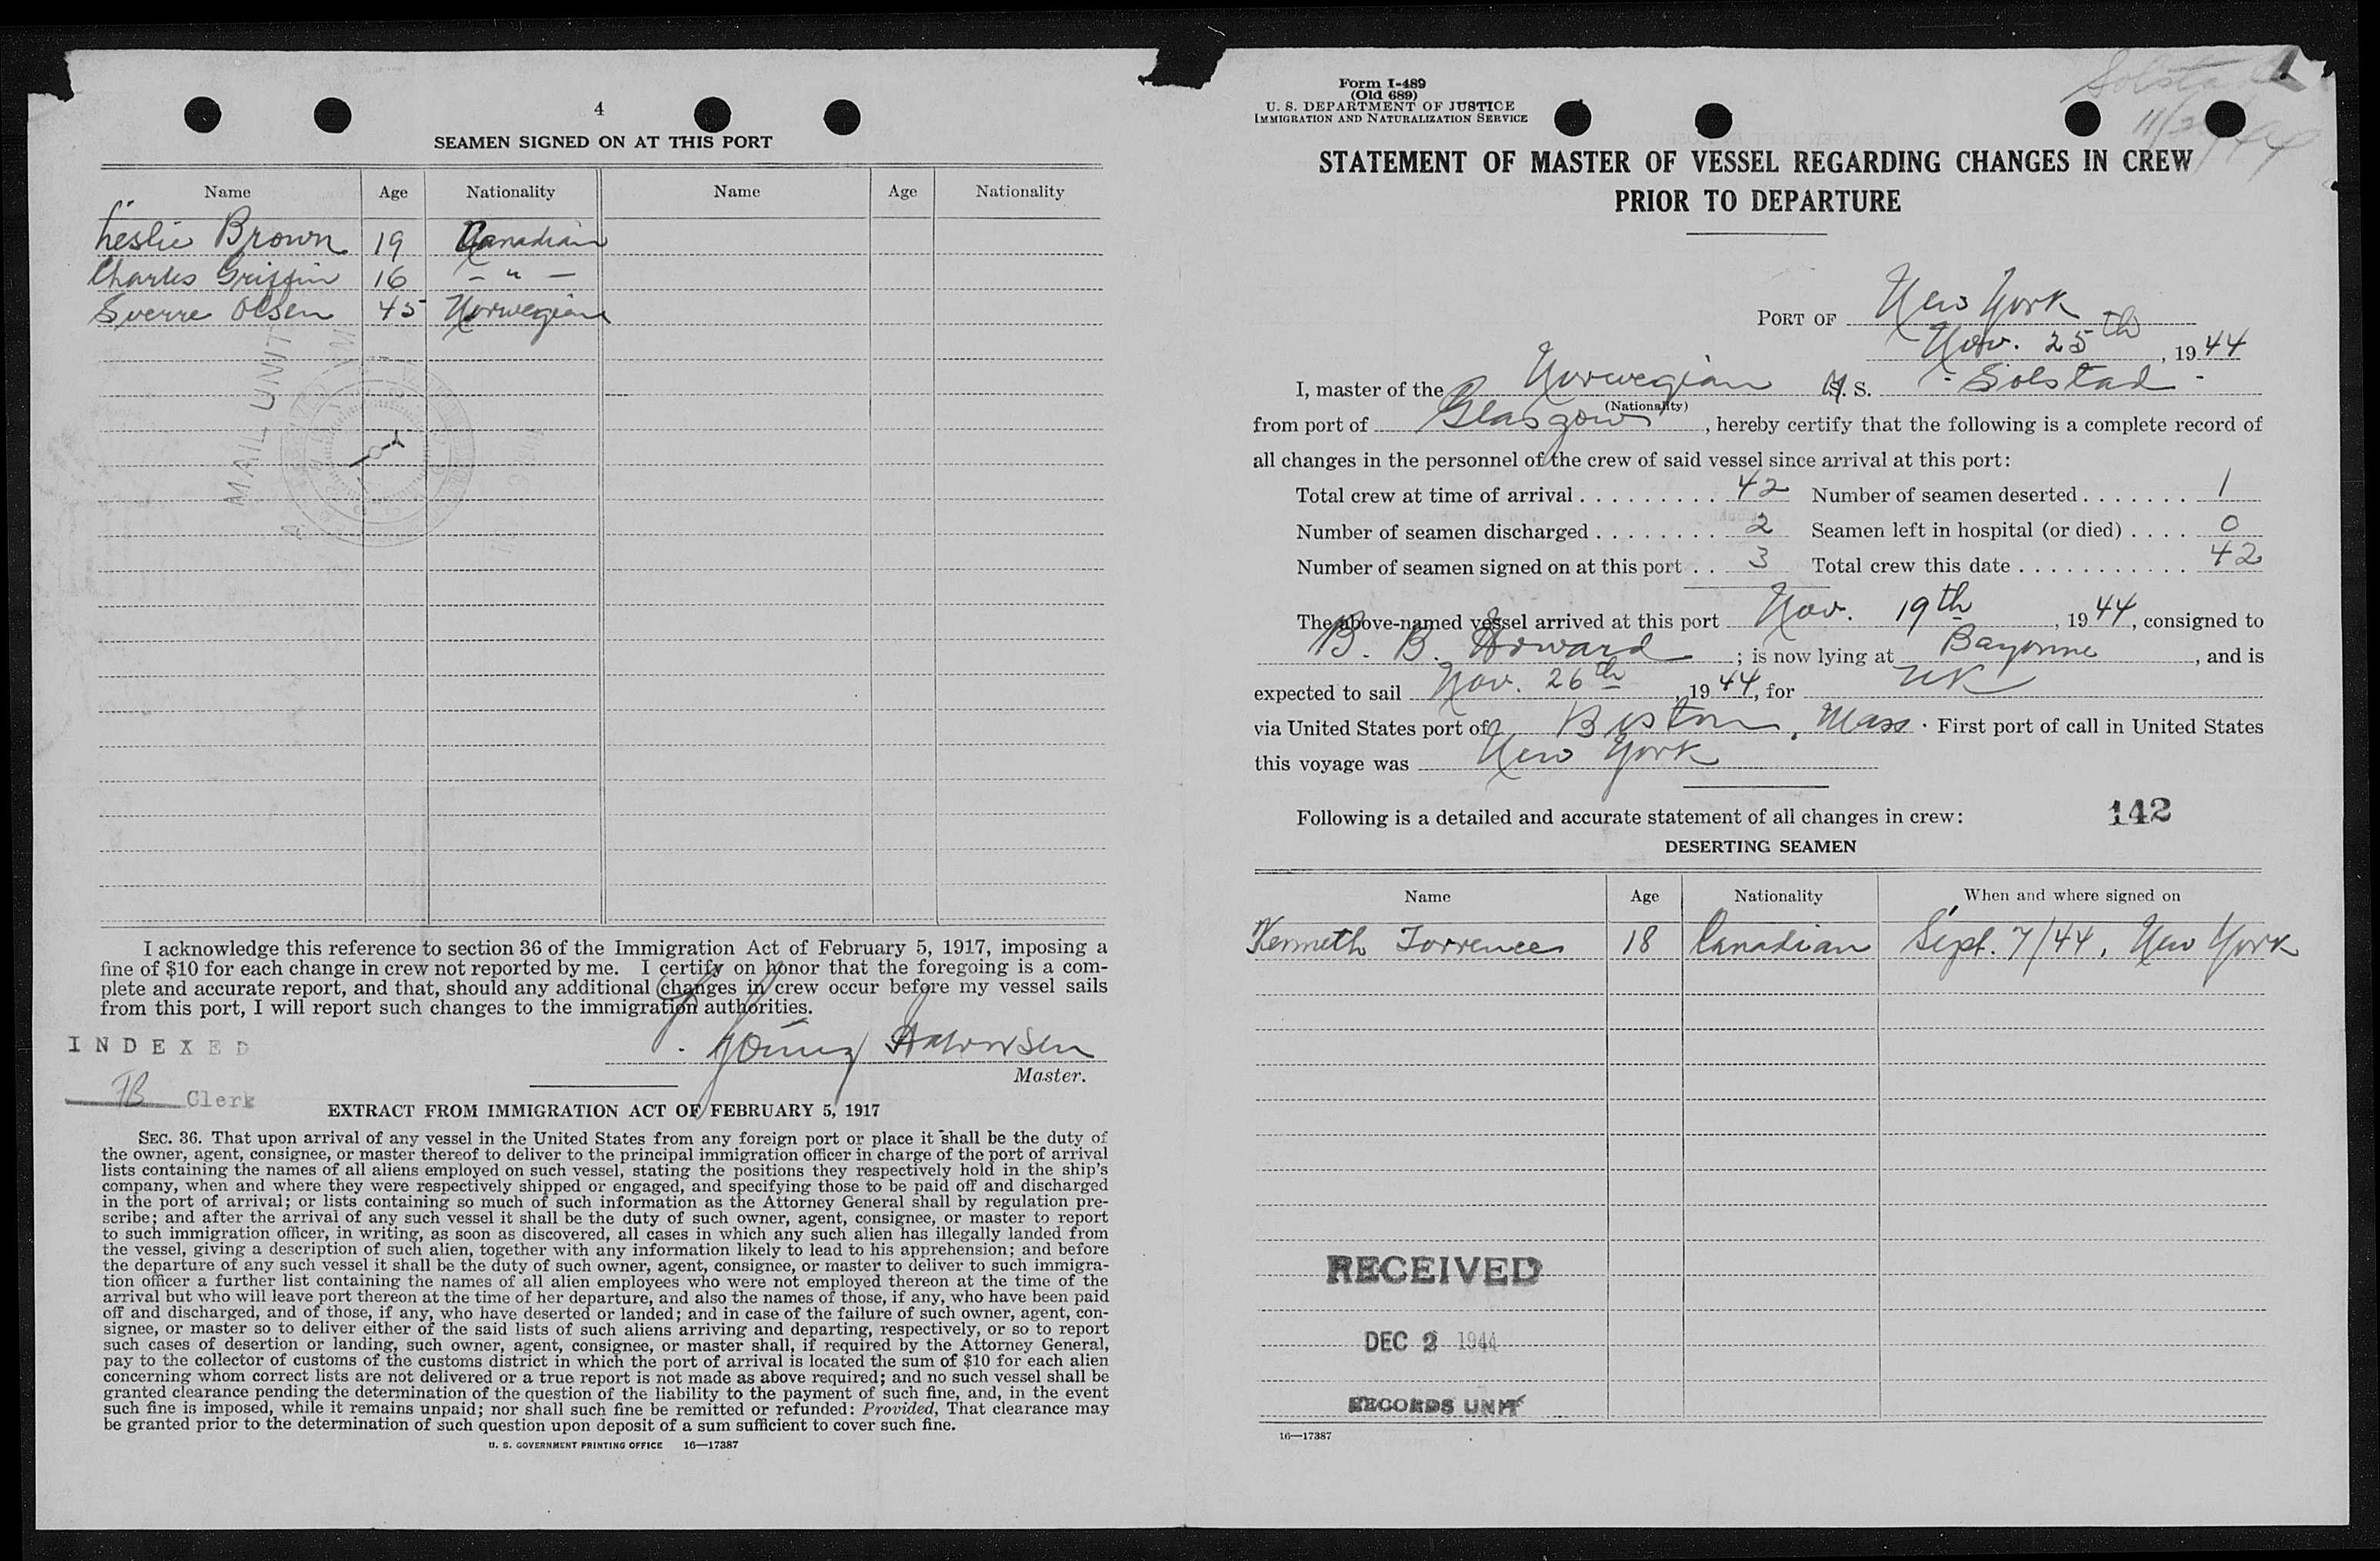 4
SEAMEN SIGNED ON AT THIS PORT
Name Age Nationality Name Age Nationality
Leslie Brown 19 Canadian
Charles Griffin 16 – " –
Sverre Olsen 45 Norwegian
MAIL UNIT
I acknowledge this reference to section 36 of the Immigration Act of February 5, 1917, imposing a
fine of $10 for each change in crew not reported by me. I certify on honor that the foregoing is a com-
plete and accurate report, and that, should any additional changes in crew occur before my vessel sails
from this port, I will report such changes to the immigration authorities.
INDEXED
Master.
Clerk
EXTRACT FROM IMMIGRATION ACT OF FEBRUARY 5, 1917
SEC. 36. That upon arrival of any vessel in the United States from any foreign port or place it shall be the duty of
the owner, agent, consignee, or master thereof to deliver to the principal immigration officer in charge of the port of arrival
lists containing the names of all aliens employed on such vessel, stating the positions they respectively hold in the ship's
company, when and where they were respectively shipped or engaged, and specifying those to be paid off and discharged
in the port of arrival; or lists containing so much of such information as the Attorney General shall by regulation pre-
scribe; and after the arrival of any such vessel it shall be the duty of such owner, agent, consignee, or master to report
to such immigration officer, in writing, as soon as discovered, all cases in which any such alien has illegally landed from
the vessel, giving a description of such alien, together with any information likely to lead to his apprehension; and before
the departure of any such vessel it shall be the duty of such owner, agent, consignee, or master to deliver to such immigra-
tion officer a further list containing the names of all alien employees who were not employed thereon at the time of the
arrival but who will leave port thereon at the time of her departure, and also the names of those, if any, who have been paid
off and discharged, and of those, if any, who have deserted or landed; and in case of the failure of such owner, agent, con-
signee, or master so to deliver either of the said lists of such aliens arriving and departing, respectively, or so to report
such cases of desertion or landing, such owner, agent, consignee, or master shall, if required by the Attorney General,
pay to the collector of customs of the customs district in which the port of arrival is located the sum of $10 for each alien
concerning whom correct lists are not delivered or a true report is not made as above required; and no such vessel shall be
granted clearance pending the determination of the question of the liability to the payment of such fine, and, in the event
such fine is imposed, while it remains unpaid; nor shall such fine be remitted or refunded: Provided, That clearance may
be granted prior to the determination of such question upon deposit of a sum sufficient to cover such fine.
U. S. GOVERNMENT PRINTING OFFICE 16—17387
Form I-489
(Old 689)
U. S. DEPARTMENT OF JUSTICE
IMMIGRATION AND NATURALIZATION SERVICE
STATEMENT OF MASTER OF VESSEL REGARDING CHANGES IN CREW
PRIOR TO DEPARTURE
PORT OF New York
Nov. 25th, 1944
I, master of the Norwegian M. S. - Solstad -
(Nationality)
from port of Glasgow, hereby certify that the following is a complete record of
all changes in the personnel of the crew of said vessel since arrival at this port:
Total crew at time of arrival . . . . . . . . . 42 Number of seamen deserted . . . . . . . 1
Number of seamen discharged . . . . . . . . 2 Seamen left in hospital (or died) . . . . 0
Number of seamen signed on at this port . . 3 Total crew this date . . . . . . . . . . . 42
The above-named vessel arrived at this port Nov. 19th, 1944, consigned to
B. B. Howard; is now lying at Bayonne, and is
expected to sail Nov. 26th, 1944, for UK
via United States port of Boston, Mass. First port of call in United States
this voyage was New York
Following is a detailed and accurate statement of all changes in crew: 142
DESERTING SEAMEN
Name Age Nationality When and where signed on
Kenneth Torrence 18 Canadian Sept. 7/44, New York
RECEIVED
DEC 2 1944
RECORDS UNIT
16—17387